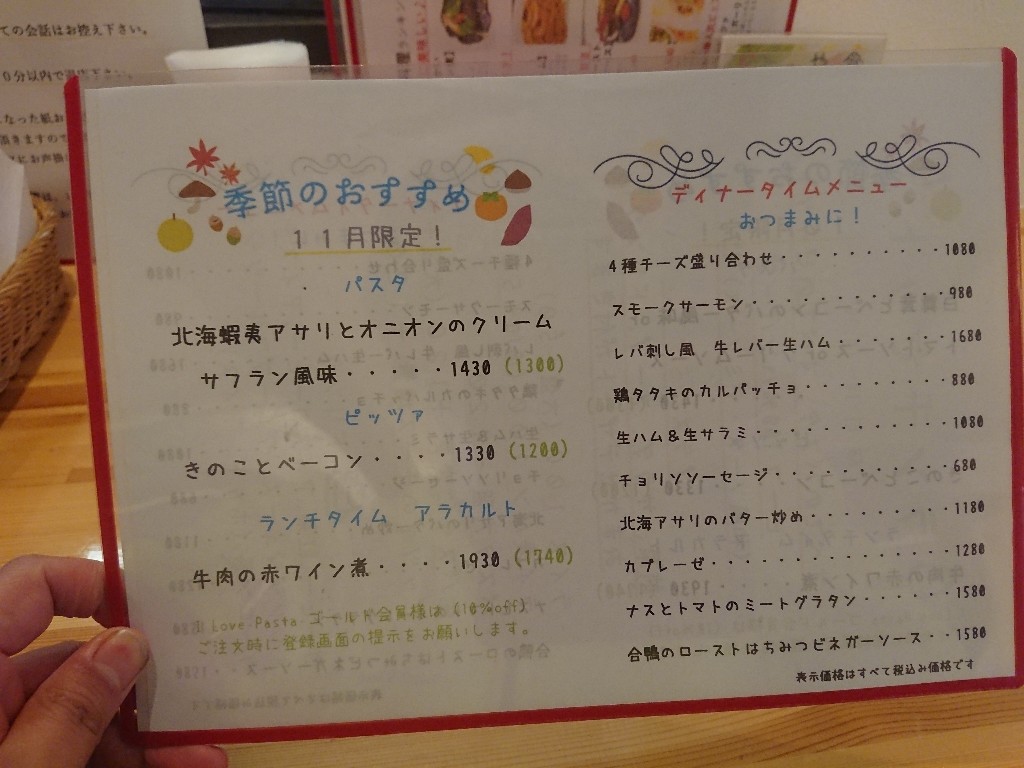 ての会話はお控え下さい。
季節のおすすめ
１１月限定！
パスタ
北海蝦夷アサリとオニオンのクリーム
サフラン風味・・・・・1430 (1300)
ピッツァ
きのことベーコン・・・・1330 (1200)
ランチタイム　アラカルト
牛肉の赤ワイン煮・・・・1930 (1740)
Love Pasta ゴールド会員様は (10%off)
ご注文時に登録画面の提示をお願いします。
ディナータイムメニュー
おつまみに！
4種チーズ盛り合わせ・・・・・・・・・・1080
スモークサーモン・・・・・・・・・・・・980
レバ刺し風　牛レバー生ハム・・・・・・・1680
鶏タタキのカルパッチョ・・・・・・・・・880
生ハム＆生サラミ・・・・・・・・・・・・1080
チョリソソーセージ・・・・・・・・・・・680
北海アサリのバター炒め・・・・・・・・・1180
カプレーゼ・・・・・・・・・・・・・・・1280
ナスとトマトのミートグラタン・・・・・・1580
合鴨のローストはちみつビネガーソース・・1580
表示価格はすべて税込み価格です